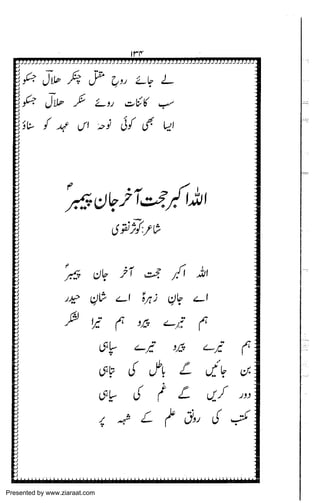 ۱۳۴
لے جائے روحِ مقتل کھینچ کر ھلالؔ جسکو
سب کائنات روئے سنکر ھلالؔ جسکو
ایسا بھی کوئی نوحہ اس عہد کو سناؤ
اللہ اکبر حجت آخر جان پیمبرؐ
شاعر: کوثرؔ نقوی
اللہ اکبر حجت آخر جان پیمبرؐ
اے جانِ زہرہؑ اے شانِ حیدر
ہم تیرے پیرو ہم تیرا لشکر
ہم تیرے پیرو تیرے سپاہی
بن جائیں گے باطل کی تباہی
دور کریں گے غم کی سیاہی
مکتب کی رونق علم کے شہہ پر
Presented by www.ziaraat.com